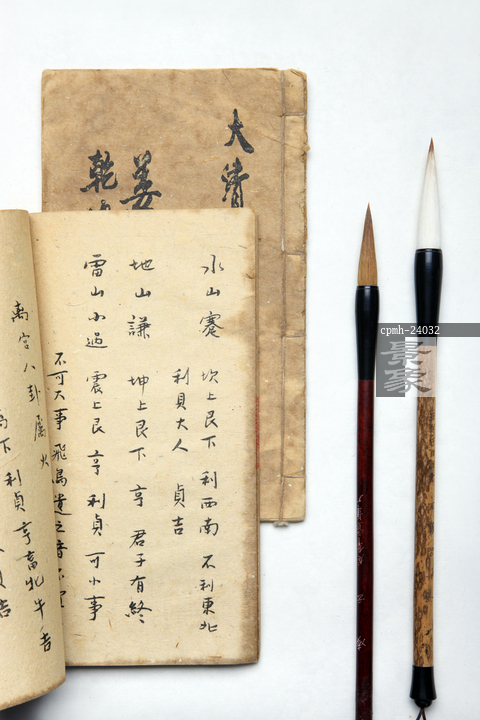 大清
姜
乾
水山蹇 坎上艮下 利西南 不利東北
利貝大人 貞吉
地山謙 坤上艮下 亨 君子有終
雷山小過 震上艮 亨 利貞 可小事
不可大事 飛鳥遺之音不宜
离宮八卦屬火
下 利貞 亨畜牝牛吉
cpmh-24032
景象